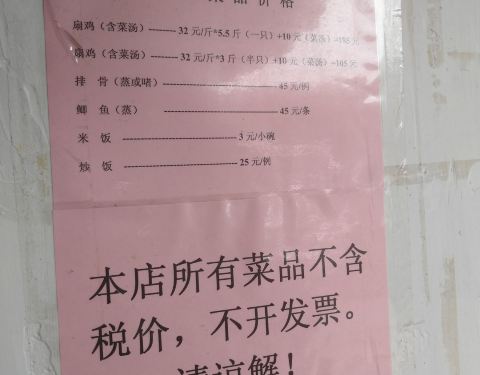 菜品价格
扇鸡（含菜汤）-------- 32 元/斤*5.5 斤（一只）+10 元（菜汤）=185元
扇鸡（含菜汤）-------- 32 元/斤*3 斤（半只）+10 元（菜汤）=105元
排 骨（蒸或啫）---------------------------------45 元/例
鲫 鱼（蒸） ---------------------------------45 元/条
米 饭 --------------------------------- 3 元/小碗
饭 --------------------------------- 25 元/例
本店所有菜品不含
税价，不开发票。
请谅解！